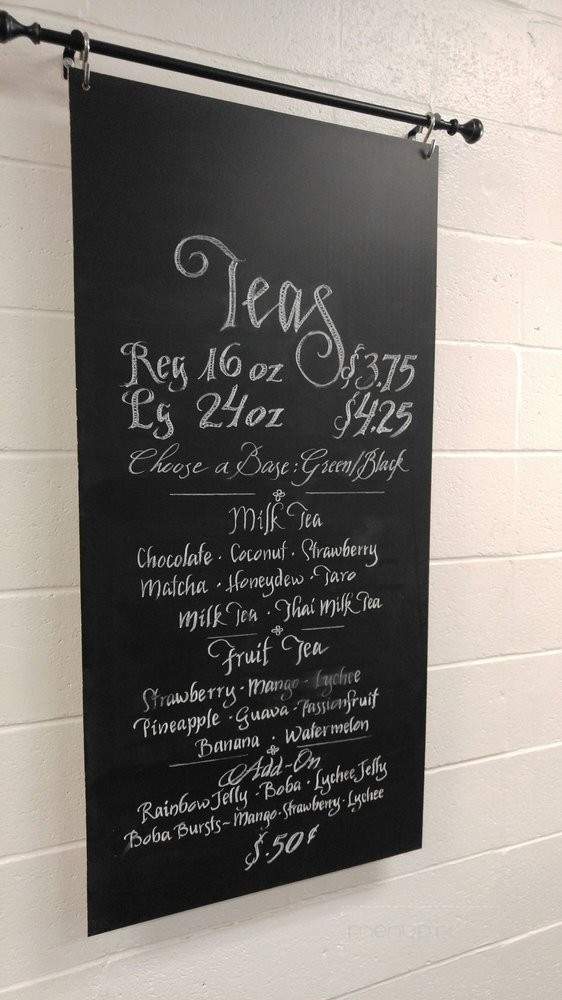 Teas
Reg 16 oz $3.75
Lg 24oz $4.25
Choose a Base: Green/Black
Milk Tea
Chocolate · Coconut · Strawberry
Matcha · Honeydew · Taro
Milk Tea · Thai Milk Tea
Fruit Tea
Strawberry · Mango · Lychee
Pineapple · Guava · Passionfruit
Banana · Watermelon
Add-On
Rainbow Jelly · Boba · Lychee Jelly
Boba Bursts~ Mango · Strawberry · Lychee
$.50¢